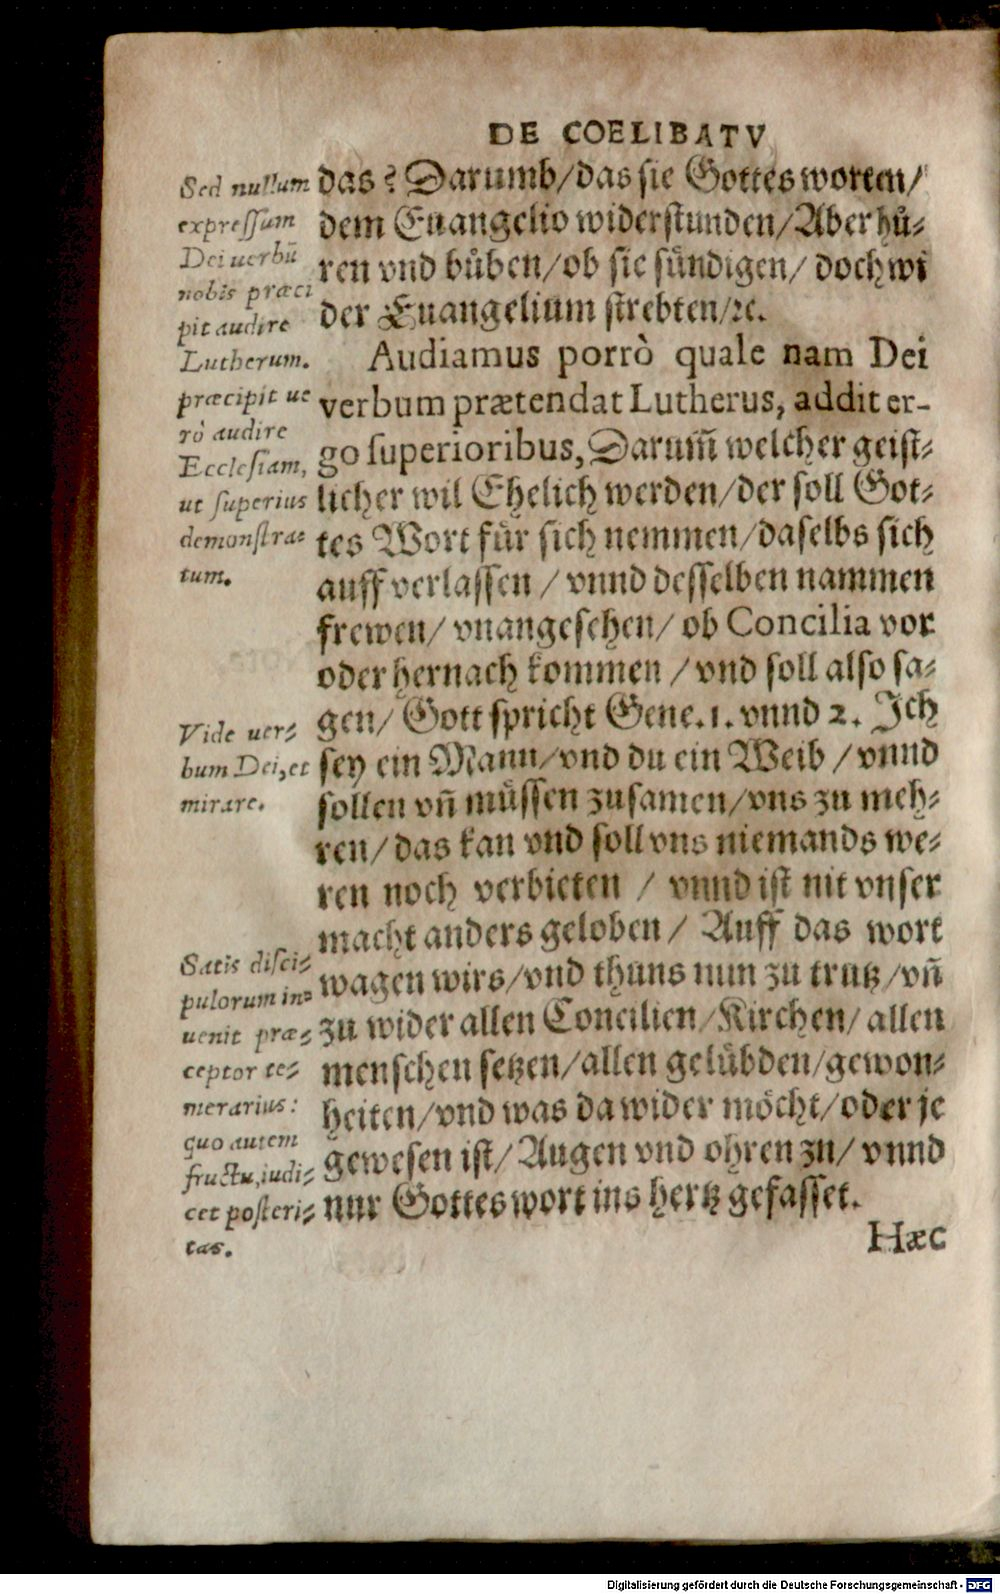 DE COELIBATV
das? Darumb/das sie Gottes worten/
dem Euangelio widerstunden/Aber hů⸗
ren vnd bůben/ob sie sündigen/ doch wi
der Euangelium strebten/ꝛc.
Audiamus porrò quale nam Dei
verbum prætendat Lutherus, addit er-
go superioribus, Darum̃ welcher geist⸗
licher wil Ehelich werden/der soll Got⸗
tes Wort für sich nemmen/daselbs sich
auff verlassen / vnnd desselben nammen
frewen/ vnangesehen/ ob Concilia vor
oder hernach kommen / vnd soll also sa⸗
gen/ Gott spricht Gene. 1. vnnd 2. Jch
sey ein Mann/vnd du ein Weib / vnnd
sollen vñ müssen zusamen/vns zu meh⸗
ren/ das kan vnd soll vns niemands we⸗
ren noch verbieten / vnnd ist nit vnser
macht anders geloben / Auff das wort
wagen wirs/vnd thuns nun zu trutz/vñ
zu wider allen Concilien/Kirchen/ allen
menschen setzen/allen gelübden/gewon⸗
heiten/vnd was da wider möcht/oder je
gewesen ist/ Augen vnd ohren zu/ vnnd
nur Gottes wort ins hertz gefasset.
Hæc
Sed nullum
expressum
Dei uerbũ
nobis præci
pit audire
Lutherum.
præcipit ue
rò audire
Ecclesiam,
ut superius
demonstra⸗
tum.
Vide uer⸗
bum Dei, et
mirare.
Satis disci⸗
pulorum in⸗
uenit præ⸗
ceptor te⸗
merarius:
quo autem
fructu, iudi⸗
cet posteri⸗
tas.
Digitalisierung gefördert durch die Deutsche Forschungsgemeinschaft - DFG